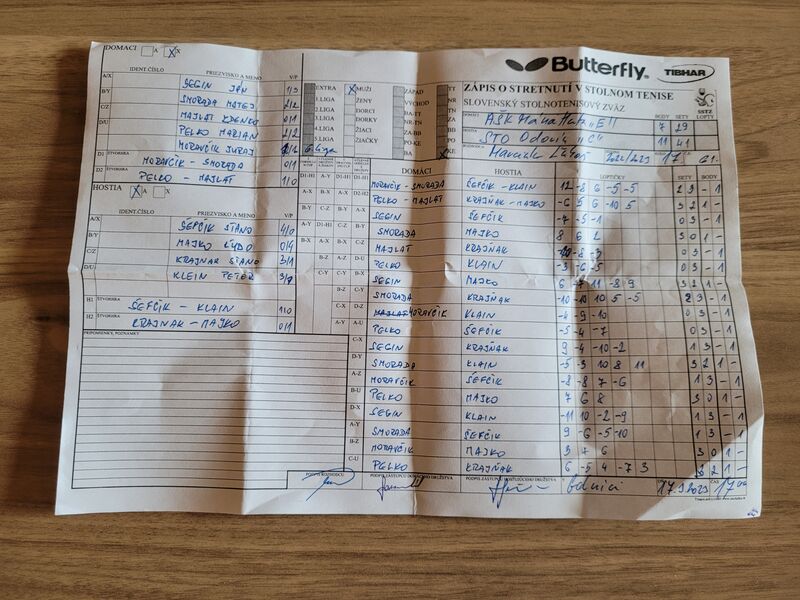 DOMÁCI A X
Butterfly
TIBHAR
IDENT.ČÍSLO PRIEZVISKO A MENO V/P
ZÁPIS O STRETNUTÍ V STOLNOM TENISE
SLOVENSKÝ STOLNOTENISOVÝ ZVÄZ
SSTZ
BODY SETY LOPTY
A/X SEGIN JÁN 1/3
B/Y SMORADA MATEJ 2/2
C/Z MAJLÁT ZDENKO 0/1
D/U PELKO MARIAN 2/2
MORAVČÍK JURAJ
D1 ŠTVORHRA MORAVČÍK - SMORADA 0/1
D2 PELKO - MAJLÁT 1/0
EXTRA MUŽI ZÁPAD TT
1.LIGA ŽENY VÝCHOD TN
2.LIGA DORCI NR
3.LIGA DORKY ZA-BB
4.LIGA ŽIACI PO-BB
5.LIGA ŽIAČKY PO-KE
BA KE
7 29
11 41
HOSTIA A X
IDENT.ČÍSLO PRIEZVISKO A MENO V/P
A/X ŠEFČÍK STANO 4/0
B/Y MAJKO ĽUDO 0/4
C/Z KRAJŇÁK STANO 3/1
D/U KLEIN PETER
H1 ŠTVORHRA ŠEFČÍK - KLAIN 1/0
H2 KRAJŇÁK - MAJKO 0/1
PRIPOMIENKY, POZNÁMKY
DOMÁCI HOSTIA LOPTIČKY SETY BODY
MORAVČÍK - SMORADA ŠEFČÍK - KLAIN 12 -8 6 -5 -5 2 3 - 1
PELKO - MAJLÁT KRAJŇÁK - MAJKO -6 5 6 -10 5 3 2 1 -
SEGIN ŠEFČÍK -7 -5 -1 0 3 - 1
SMORADA MAJKO 8 6 2 3 0 1 -
MAJLÁT KRAJŇÁK -10 -8 -3 0 3 - 1
PELKO KLAIN -3 -6 -5 0 3 - 1
SEGIN MAJKO 3 1 1 -
SMORADA KRAJŇÁK -10 -10 10 5 -5 2 3 - 1
MORAVČÍK KLAIN -4 -9 -10 0 3 - 1
PELKO ŠEFČÍK -5 -4 -7 0 3 - 1
SEGIN KRAJŇÁK 9 -4 -10 -2 1 3 - 1
SMORADA KLAIN -5 -3 10 8 11 3 2 1 -
MORAVČÍK ŠEFČÍK -8 -8 7 -6 1 3 - 1
PELKO MAJKO 7 6 8 3 0 1 -
SEGIN KLAIN -11 10 -2 -9 1 3 - 1
SMORADA ŠEFČÍK 9 -6 -5 -10 1 3 - 1
MORAVČÍK MAJKO 3 7 6 3 0 1 -
PELKO KRAJŇÁK 6 -5 4 -7 3 3 2 1 -
PODPIS ROZHODCU PODPIS ZÁSTUPCU DOMÁCEHO DRUŽSTVA PODPIS ZÁSTUPCU HOSŤUJÚCEHO DRUŽSTVA